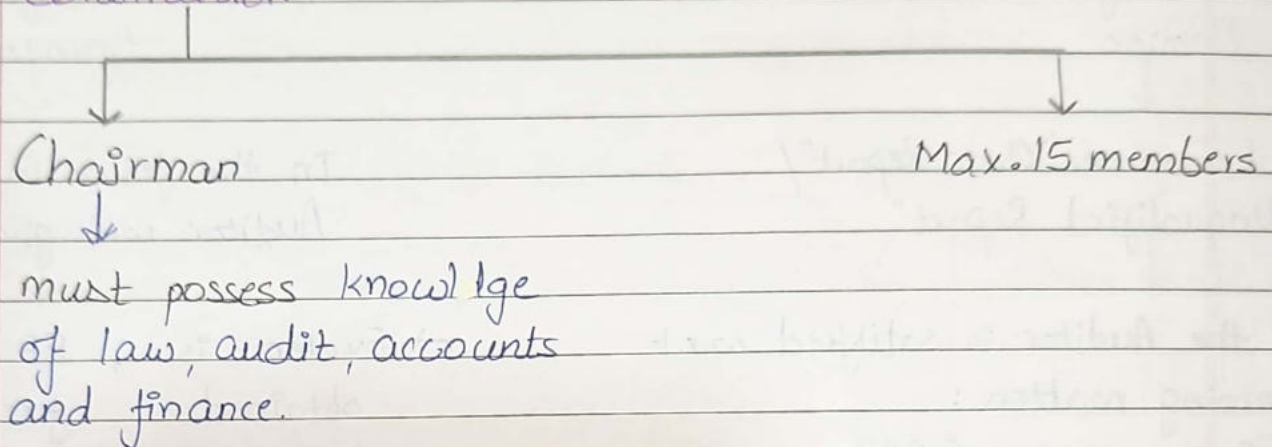 Chairman
Max. 15 members
must possess knowl lge
of law, audit, accounts
and finance.